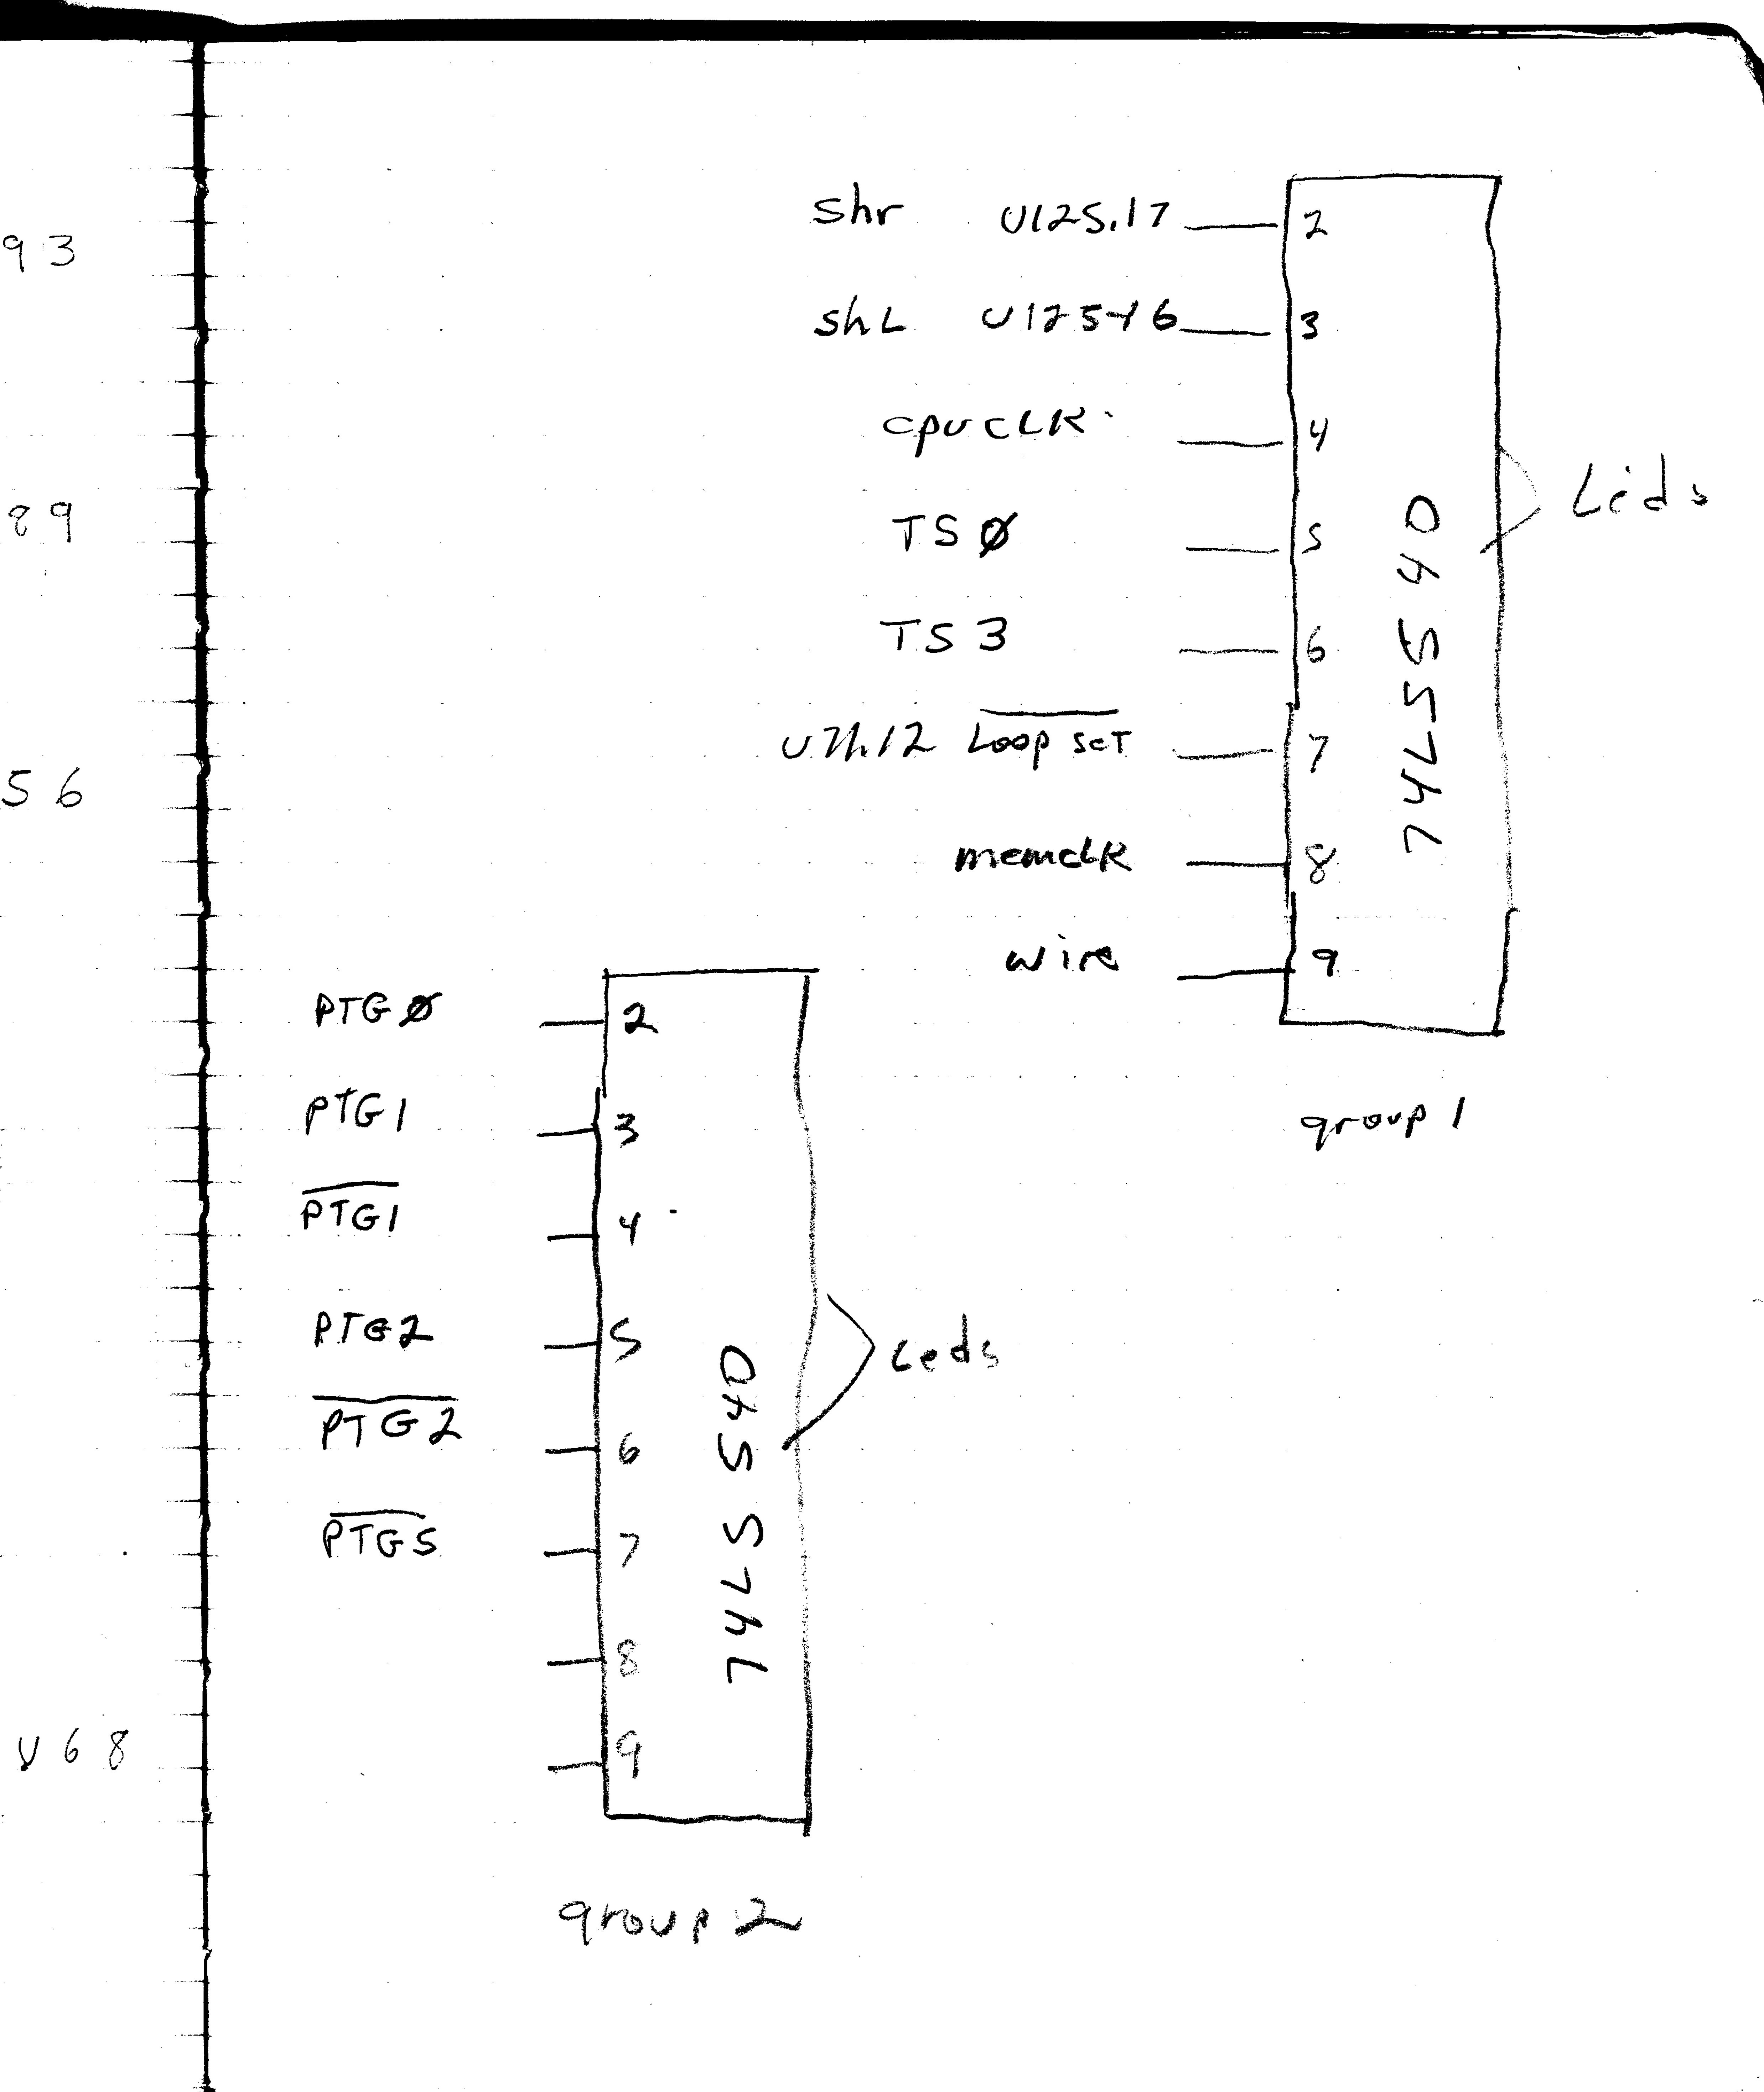 93
89
56
U68
shr U125.17 2
shL U125-16 3
cpu CLK 4
TSØ 5
TS3 6
Loop SET 7
memcLK 8
wire 9
74LS540
Leds
group 1
PTGØ 2
PTG1 3
PTG1 4
PTG2 5
PTG2 6
PTG5 7
8
9
74LS540
Leds
group 2